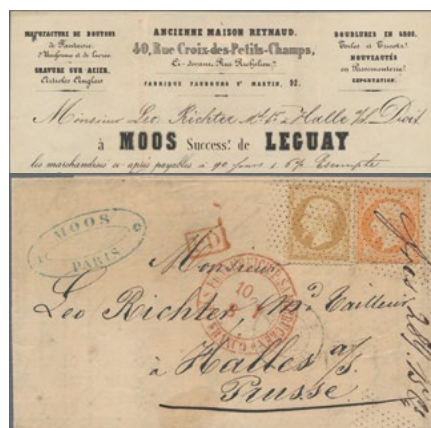 MANUFACTURE DE BOUTONS
de Fantaisie
d'Uniforme et de Livrée
GRAVURE SUR ACIER
Articles Anglais
ANCIENNE MAISON REYNAUD.
40, Rue Croix-des-Petits-Champs,
Ci-devant, Rue Richelieu
FABRIQUE FAUBOURG ST MARTIN, 92.
DOUBLURES EN GROS.
Toiles et Tricots
NOUVEAUTÉS
en Passementerie
EXPORTATION.
Monsieur Leo Richter Md Tr à Halle a/S Doit
à MOOS Success.r de LEGUAY
les marchandises ci-après payables à 90 jours 6% Escompte
MOOS
PARIS
PD
10
Monsieur
Leo Richter, Md Tailleur
à Halles a/S
Prusse